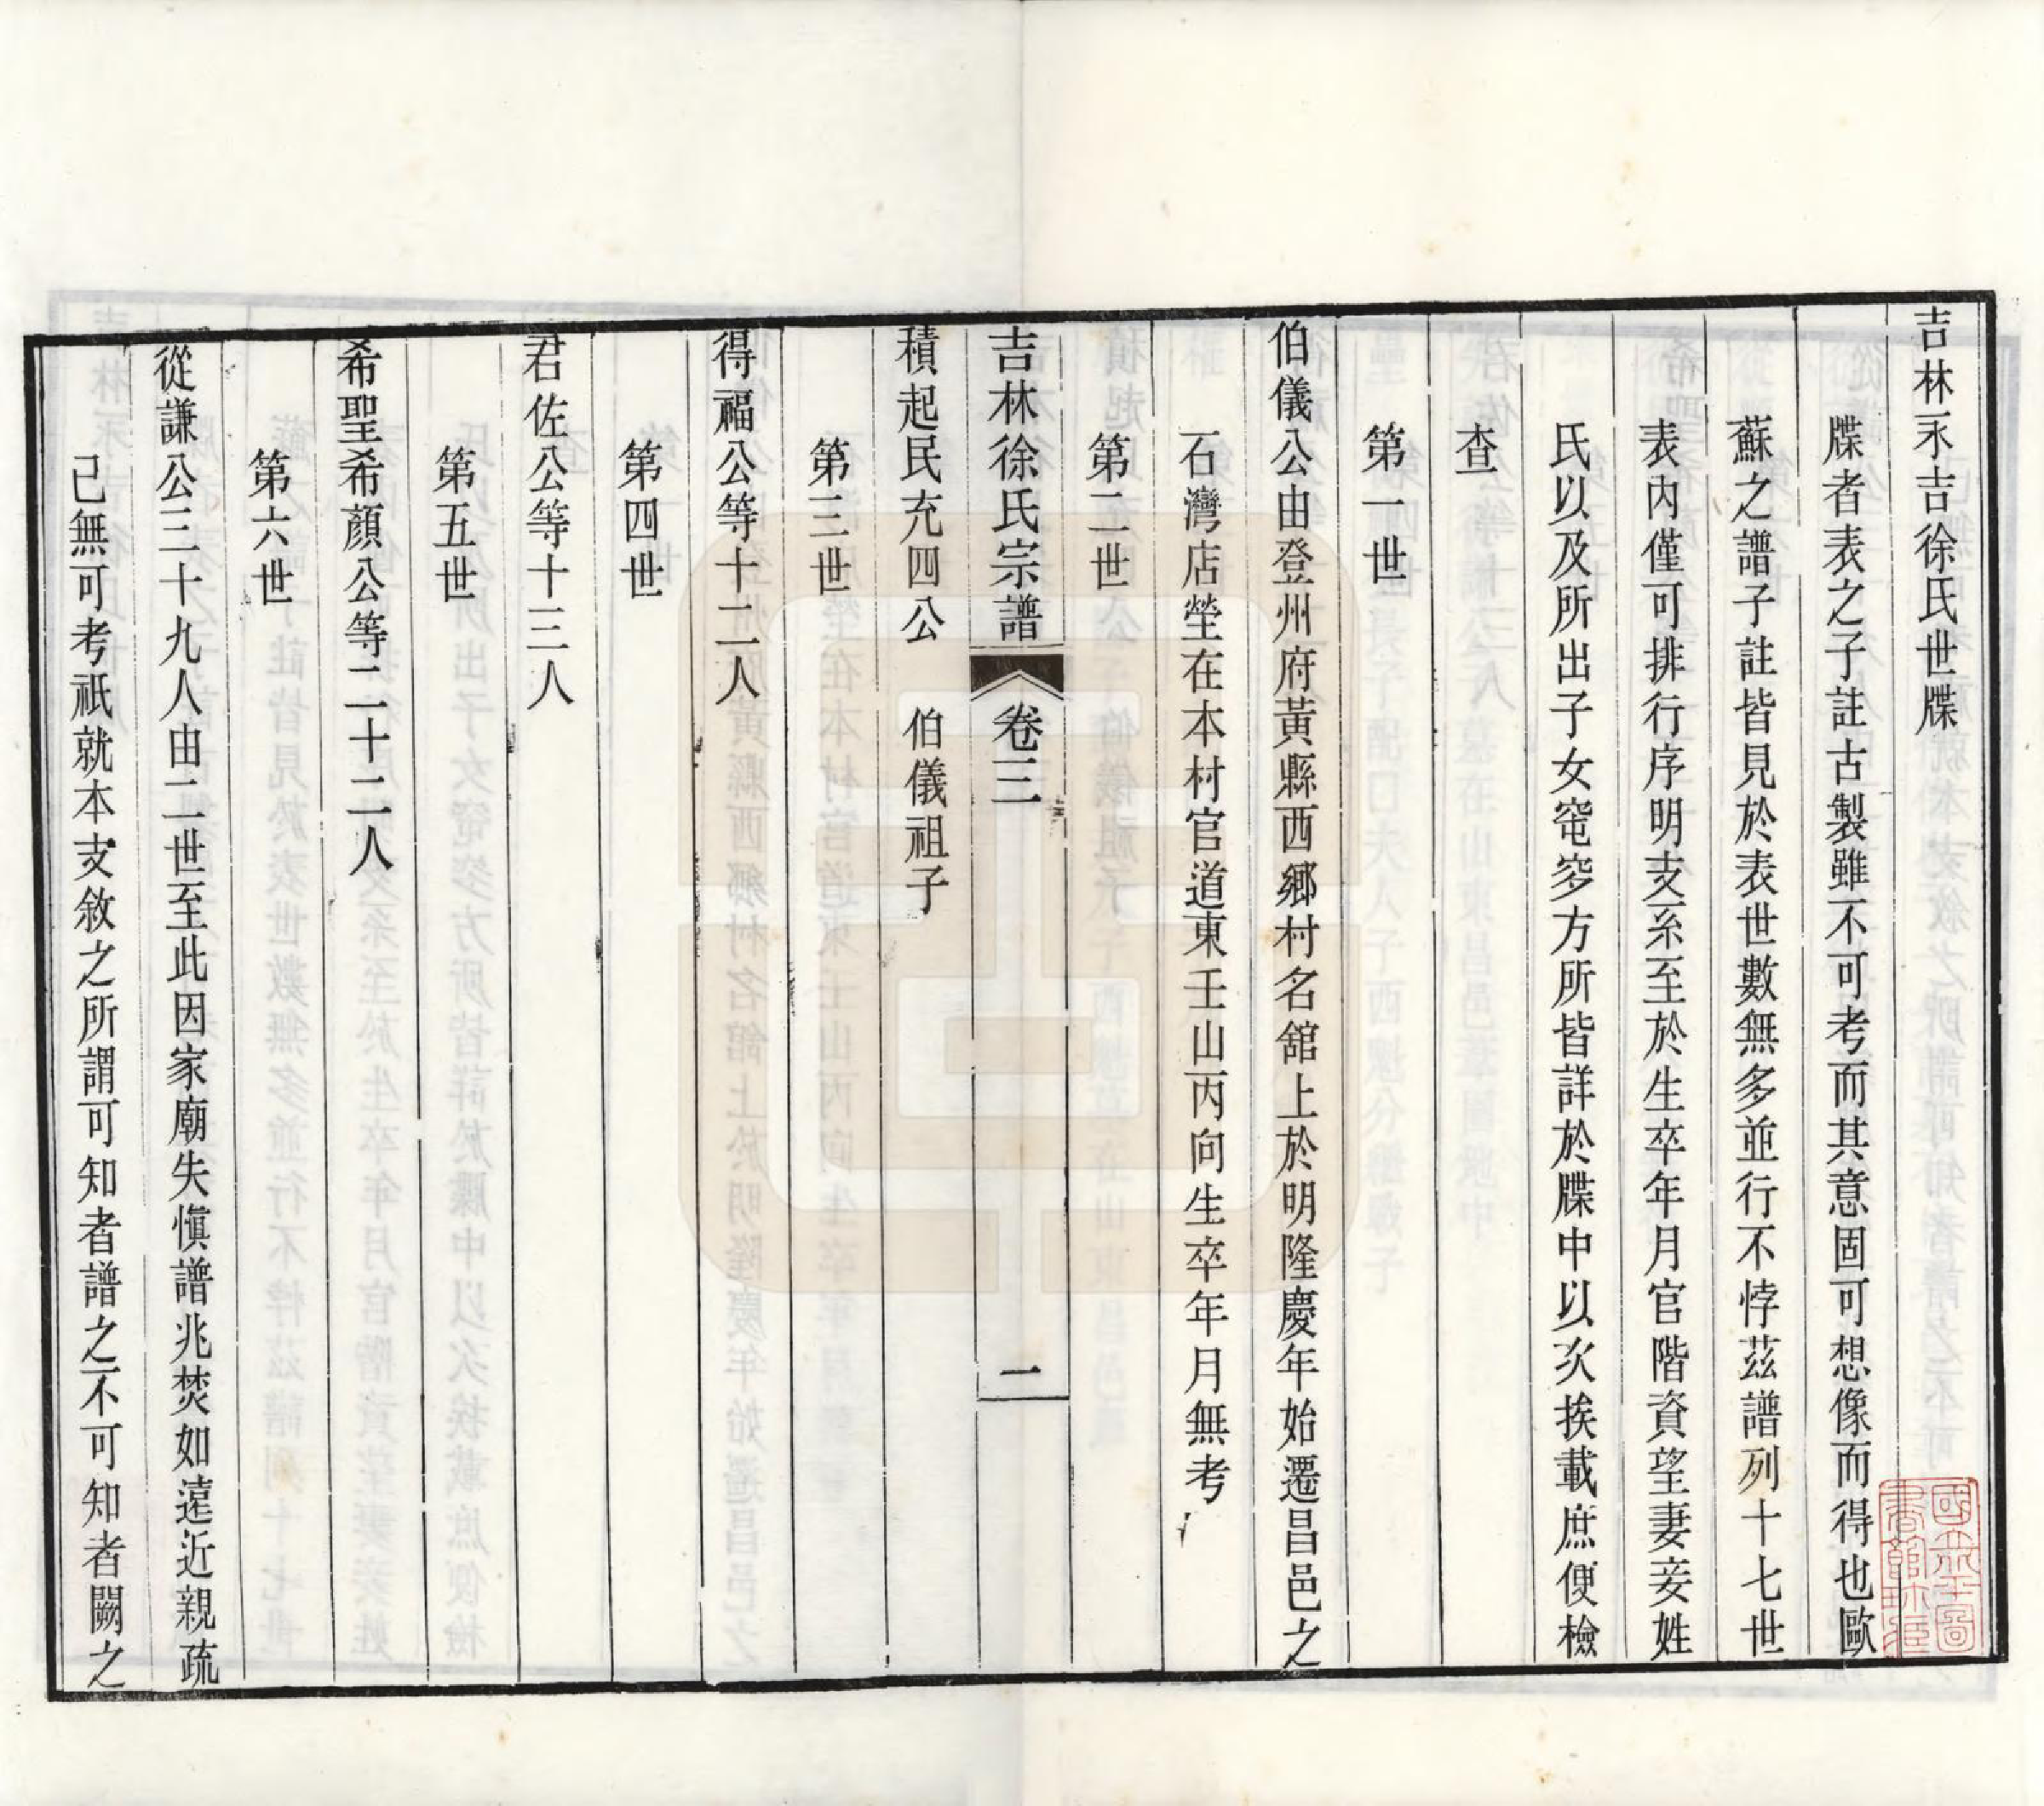 吉林永吉徐氏世牒
牒者表之子註古製雖不可考而其意固可想像而得也歐
蘇之譜子註皆見於表世數無多並行不悖茲譜列十七世
表內僅可排行序明支系至於生卒年月官階資望妻妾姓
氏以及所出子女窀穸方所皆詳於牒中以次挨載庶便檢
查
第一世
伯儀公由登州府黃縣西鄉村名舘上於明隆慶年始遷昌邑之
石灣店塋在本村官道東壬山丙向生卒年月無考
第二世
吉林徐氏宗譜 卷三 二
積起民充四公 伯儀祖子
第三世
得福公等十二人
第四世
君佐公等十三人
第五世
希聖希顏公等二十二人
第六世
從謙公三十九人由二世至此因家廟失愼譜兆焚如遠近親疏
已無可考祇就本支敘之所謂可知者譜之不可知者闕之
國立北平圖書館珍藏